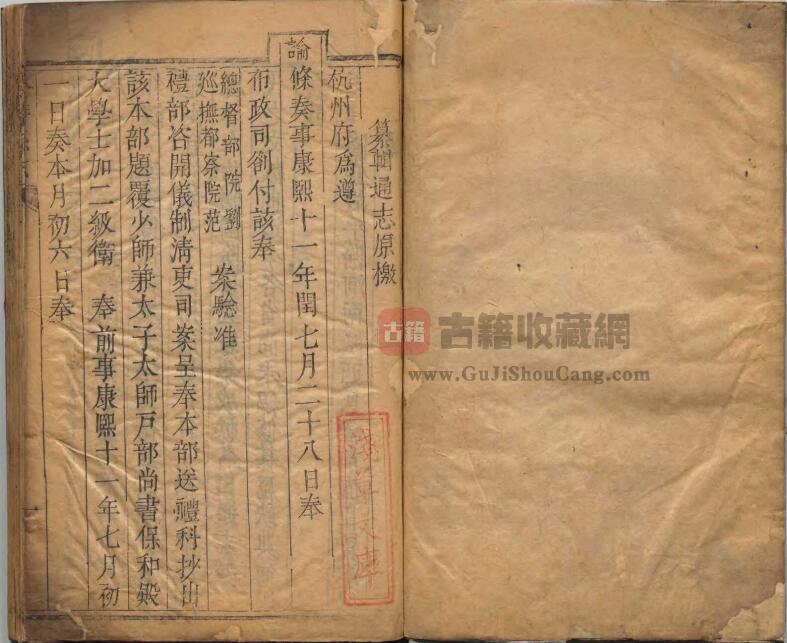 纂輯通志原檄
杭州府爲遵
諭條奏事康熙十一年閏七月二十八日奉
布政司劄付該奉
總督部院劉
巡撫都察院范
案驗准
禮部咨開儀制清吏司案呈奉本部送禮科抄出
該本部題覆少師兼太子太師戸部尚書保和殿
大學士加二級衛 奉前事康熙十一年七月初
一日奏本月初六日奉
一
淺草文庫
古籍
古籍收藏網
www.GuJiShouCang.com